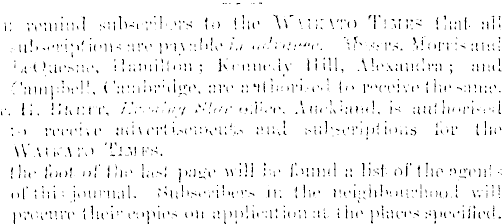 remind subscribers to the WAIKATO TIMES that all
subscriptions are payable in advance. Messrs. Morris and
LeQuesne, Hamilton; Kennedy Hill, Alexandra; and
Campbell, Cambridge, are authorised to receive the same.
Evening Star office, Auckland, is authorised
to receive advertisements and subscriptions for the
WAIKATO TIMES.
the foot of the last page will be found a list of the agents
of this journal. Subscribers in the neighbourhood will
procure their copies on application at the places specified.